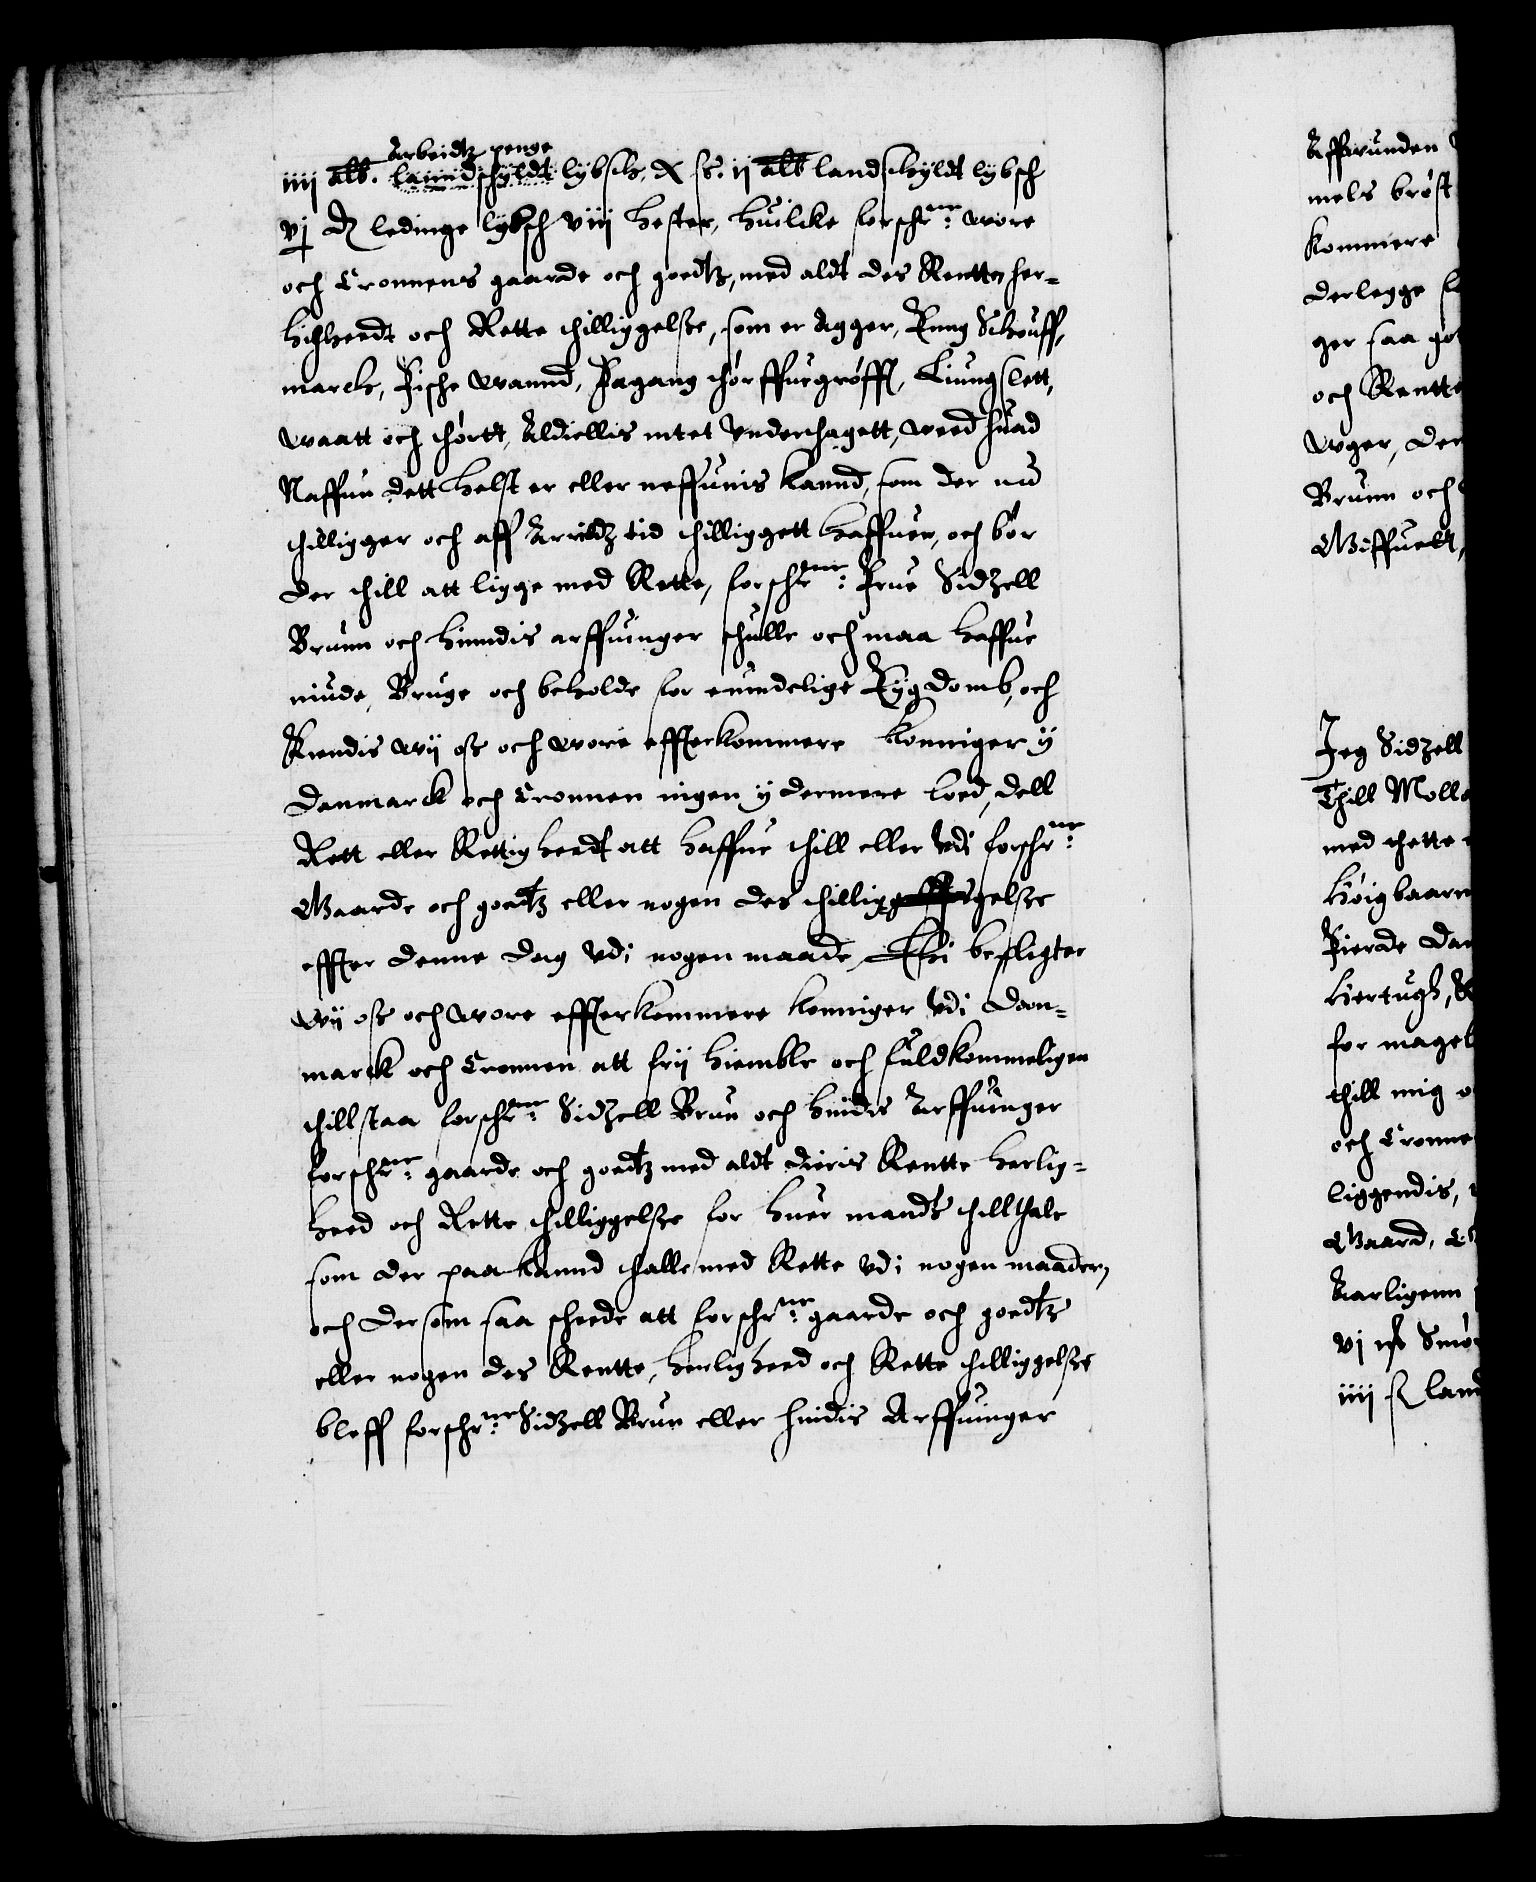 Arbeidtz penge
iiij alb. lanndschyldt lybsch, X ß. ij alb landschyldt lybsch
vj ₰ ledinge lybsch viij hester, huilcke forschrne: wore
och Cronnens gaarde och goedtz, med aldt des Rentte her-
ligheedt och Rette thilliggelsze, som er Agger, Enng Schouff,
marck, Fische wannd, Fægang thørffuegrøfft, Liungslett,
waatt och thørtt, Aldiellis intet Vnderthagett, weed huad
Naffnn dett helst er eller neffnnis kannd, som der nu
thilligger och aff Arildz tid thilliggett haffuer, och bør
der thill att ligge med Rette, forschrne: Frue Sidzell
Brunn och hinndis arffuinger schulle och maa haffue
niude, Bruge och beholde for euindelige Eygdomb, och
Kiendis wij osz och wore effterkommere konniger y
Danmarck och Cronnen ingen ydermere loed, dell
Rett eller Rettigheedt att haffue thill eller Vdj forschrne:
Gaarde och goedtz eller nogen des thilliggelsze
effter denne dag Vdj nogen maade, Thi bepligter
wij osz och wore effterkommere konniger Vdj Dan-
marck och Cronnen att frij hiemble och fuldkommeligen
thillstaa forschrne: Sidzell Brun och hindis Arffuinger
forschrne: gaarde och goedtz med aldt dieris Rentte herlig-
heed och Rette thilliggelsze for huer mandts thillthale
som der paa kannd thalle med Rette Vdj nogen maader,
och dersom saa scheede att forschrne: gaarde och goedtz
eller nogen des Rentte, herligheed och Rette thilliggelsze
bleff forschrne: Sidzell Brun eller hindis Arffuinger
Affwunden
mels brøst
kommere
derlegge
ger saa go
och Rentte
wger, der
Brunn och
Jeg Sidzell
Thill Moll
med thette
Høigbaarn
Fierde Dan
Hertugh,
for magel
thill mig o
och Cronne
liggendis,
Gaard,
Aarligenn
vj Smø
iiij ß land